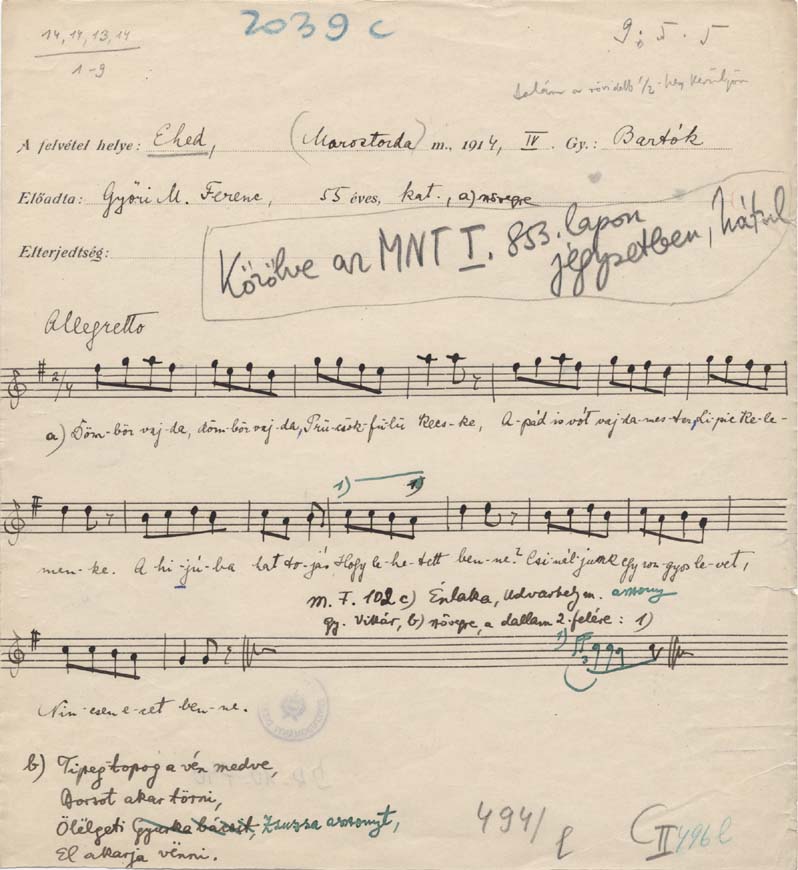 14, 14, 13, 14
1-9
2039 c
9; 5 . 5
A felvétel helye: Ehed, (Marostorda) m., 1914, IV. Gy.: Bartók
Előadta: Győri M. Ferenc, 55 éves, kat., a) szövegre
Elterjedtség:
Közölve az MNT I. 853. lapon
jegyzetben, hátul
Allegretto
2/4
a) Döm-bör vaj-da, döm-bör vaj-da, Prü-csök-fü-lü kecs-ke, A-pád is vót vaj-da-mes-ter, Li-pic-ke-le-
1)
men-ke. A hi-jú-ba hat to-jás Hogy le-he-tett ben-ne? Csi-nál-junk egy ron-gyos le-vet,
M. F. 102 c) Énlaka, Udvarhely m. asszony
gy. Vikár, b) szövegre, a dallam 2. felére: 1)
1)
3
Nin-csen e-cet ben-ne.
b) Tipeg topog a vén medve,
Borsot akar törni,
Ölelgeti Gyurka bácsit, Zsuzsa asszonyt,
El akarja vënni.
494/l
C II 496l